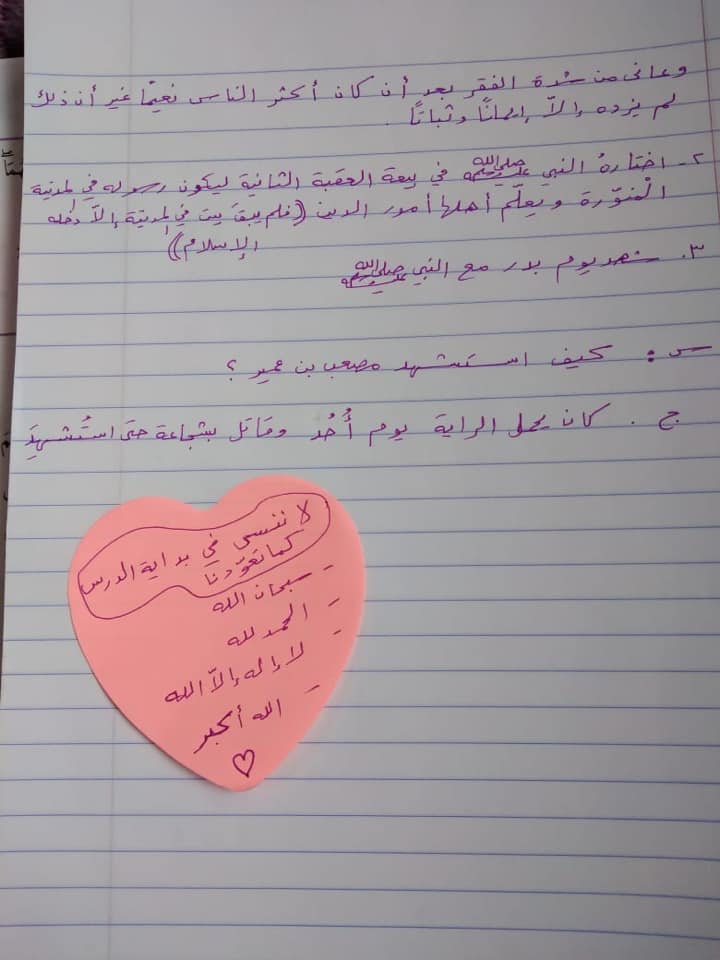 وعانى من شدة الفقر بعد أن كان أكثر الناس نعيمًا غير أن ذلك
لم يزده إلاّ إيمانًا وثباتًا.
٢- اختارهُ النبي صلى الله عليه وسلم في بيعة العقبة الثانية ليكون رسوله في المدينة
المنوّرة و يعلّم أهلها أمور الدين (فلم يبقَ بيت في المدينة إلاّ دخله
الإسلام)
٣. شهد يوم بدر مع النبي صلى الله عليه وسلم
س: كيف استشهد مصعب بن عمير؟
ج. كان يحمل الراية يوم أُحُد وقاتل بشجاعة حتى استُشهِدَ
لا ننسى في بداية الدرس
كما تعوّدنا
- سبحان الله
- الحمد لله
- لا إله إلاّ الله
- الله أكبر
♡